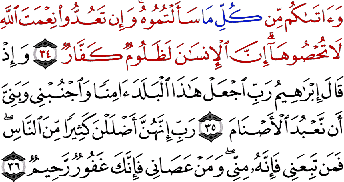 وَءَاتَىٰكُم مِّن كُلِّ مَا سَأَلْتُمُوهُ ۚ وَإِن تَعُدُّوا۟ نِعْمَتَ ٱللَّهِ
لَا تُحْصُوهَآ ۗ إِنَّ ٱلْإِنسَـٰنَ لَظَلُومٌ كَفَّارٌ ﴿٣٤﴾ وَإِذْ
قَالَ إِبْرَٰهِيمُ رَبِّ ٱجْعَلْ هَـٰذَا ٱلْبَلَدَ ءَامِنًا وَٱجْنُبْنِى وَبَنِىَّ
أَن نَّعْبُدَ ٱلْأَصْنَامَ ﴿٣٥﴾ رَبِّ إِنَّهُنَّ أَضْلَلْنَ كَثِيرًا مِّنَ ٱلنَّاسِ ۖ
فَمَن تَبِعَنِى فَإِنَّهُۥ مِنِّى ۖ وَمَنْ عَصَانِى فَإِنَّكَ غَفُورٌ رَّحِيمٌ ﴿٣٦﴾